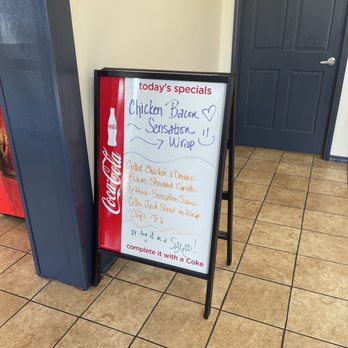 today's specials
Chicken Bacon
Sensation
Wrap
Coca-Cola
Grilled Chicken & Onions
Bacon - Shredded Carrots
Lettuce - Sensation Sauce
Colby Jack Shred in Wrap
Chips
Or try it as a Salad!
complete it with a Coke